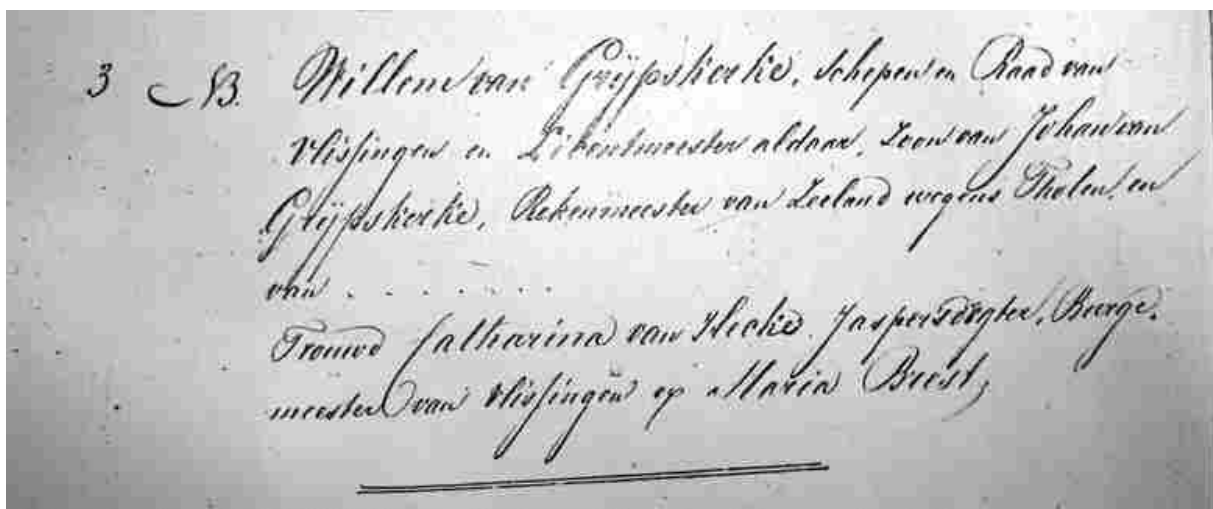 3 NB. Willem van Grijpskerke, Schepen en Raad van
Vlissingen en Librentmeester aldaar, Zoon van Johan van
Grijpskerke, Rekenmeester van Zeeland wegens Tholen, en
van . . . . . . . .
Trouwd Catharina van Hecke, Jaspersdogter, Burge-
meester van Vlissingen ex Maria Brest,